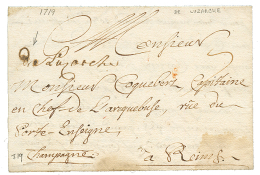 1719
DE LAZARCHE
Monsieur
De Lazarche
Monsieur Coquebert Capitaine
en chef de L'arquebuse, rüe du
Porte-Enseigne,
en Champagne
a Reims.